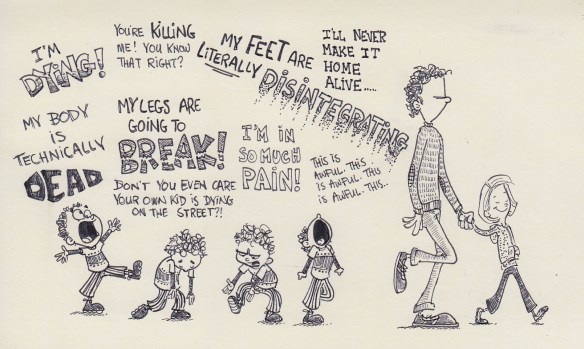 I'M
DYING!
YOU'RE KILLING
ME! YOU KNOW
THAT RIGHT?
MY FEET ARE
LITERALLY
DISINTEGRATING
I'LL NEVER
MAKE IT
HOME
ALIVE.....
MY BODY
IS
TECHNICALLY
DEAD
MY LEGS ARE
GOING TO
BREAK!
DON'T YOU EVEN CARE
YOUR OWN KID IS DYING
ON THE STREET?!
I'M IN
SO MUCH
PAIN!
THIS IS
AWFUL. THIS
IS AWFUL. THIS
IS AWFUL. THIS..